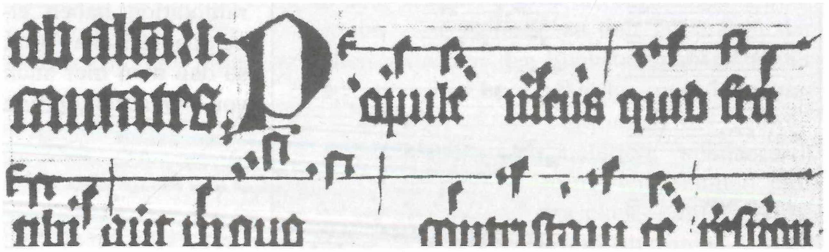 ab altari:
cantates. Popule meus quid feci
tibi aut in quo contristaui te